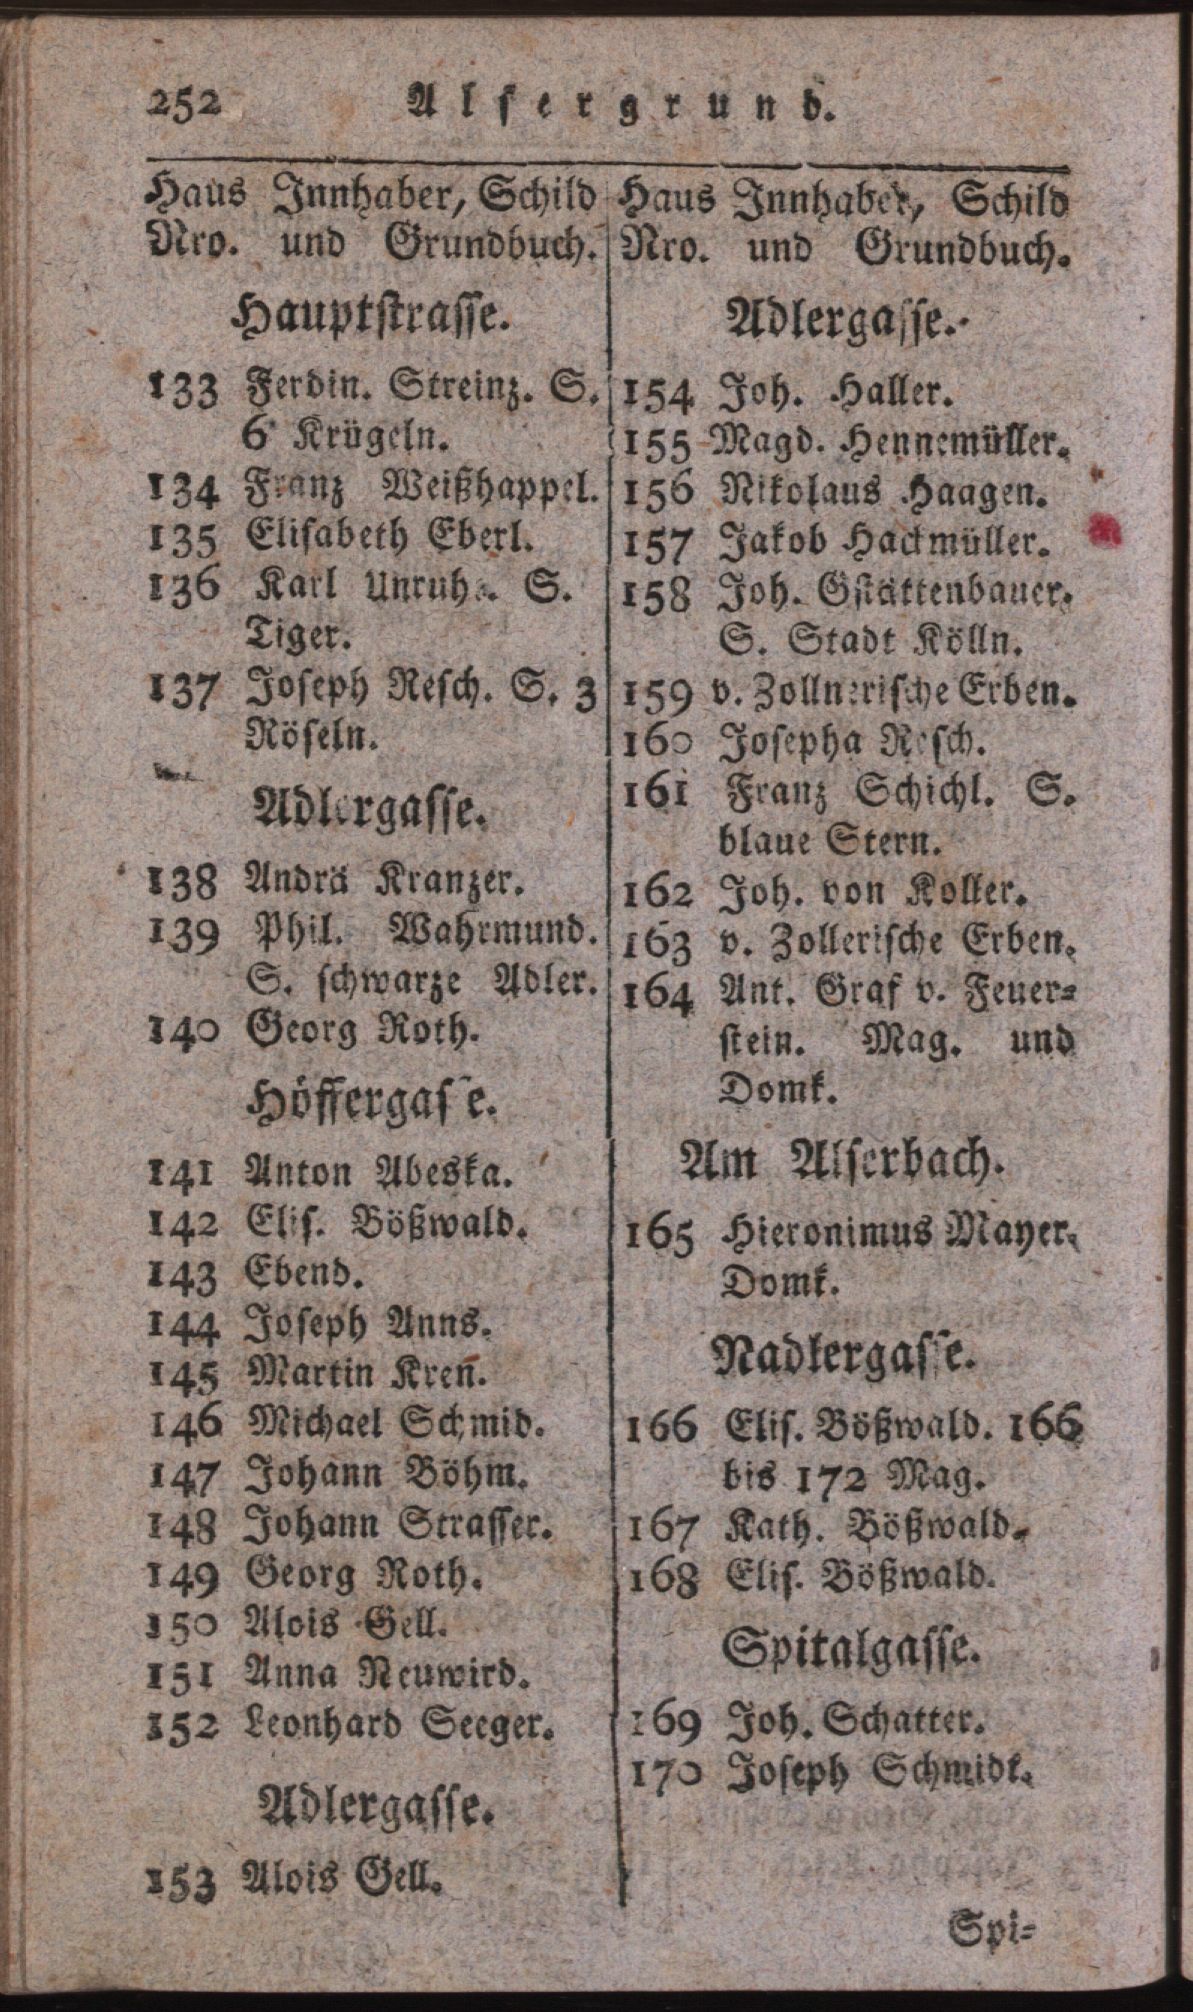 252 Alsergrund.
Haus Innhaber, Schild
Nro. und Grundbuch.
Hauptstrasse.
133 Ferdin. Streinz. S.
6 Krügeln.
134 Franz Weißhappel.
135 Elisabeth Eberl.
136 Karl Unruhe. S.
Tiger.
137 Joseph Resch. S. 3
Röseln.
Adlergasse.
138 Andrä Kranzer.
139 Phil. Wahrmund.
S. schwarze Adler.
140 Georg Roth.
Höffergasse.
141 Anton Abeska.
142 Elis. Bößwald.
143 Ebend.
144 Joseph Anns.
145 Martin Kren̄.
146 Michael Schmid.
147 Johann Böhm.
148 Johann Strasser.
149 Georg Roth.
150 Alois Gell.
151 Anna Neuwird.
152 Leonhard Seeger.
Adlergasse.
153 Alois Gell.
Haus Innhaber, Schild
Nro. und Grundbuch.
Adlergasse.
154 Joh. Haller.
155 Magd. Hennemüller.
156 Nikolaus Haagen.
157 Jakob Hackmüller.
158 Joh. Gstättenbauer.
S. Stadt Kölln.
159 v. Zollnerische Erben.
160 Josepha Resch.
161 Franz Schichl. S.
blaue Stern.
162 Joh. von Koller.
163 v. Zollerische Erben.
164 Ant. Graf v. Feuer=
stein. Mag. und
Domk.
Am Alserbach.
165 Hieronimus Mayer.
Domk.
Nadlergasse.
166 Elis. Bößwald. 166
bis 172 Mag.
167 Kath. Bößwald.
168 Elis. Bößwald.
Spitalgasse.
169 Joh. Schatter.
170 Joseph Schmidt.
Spi=